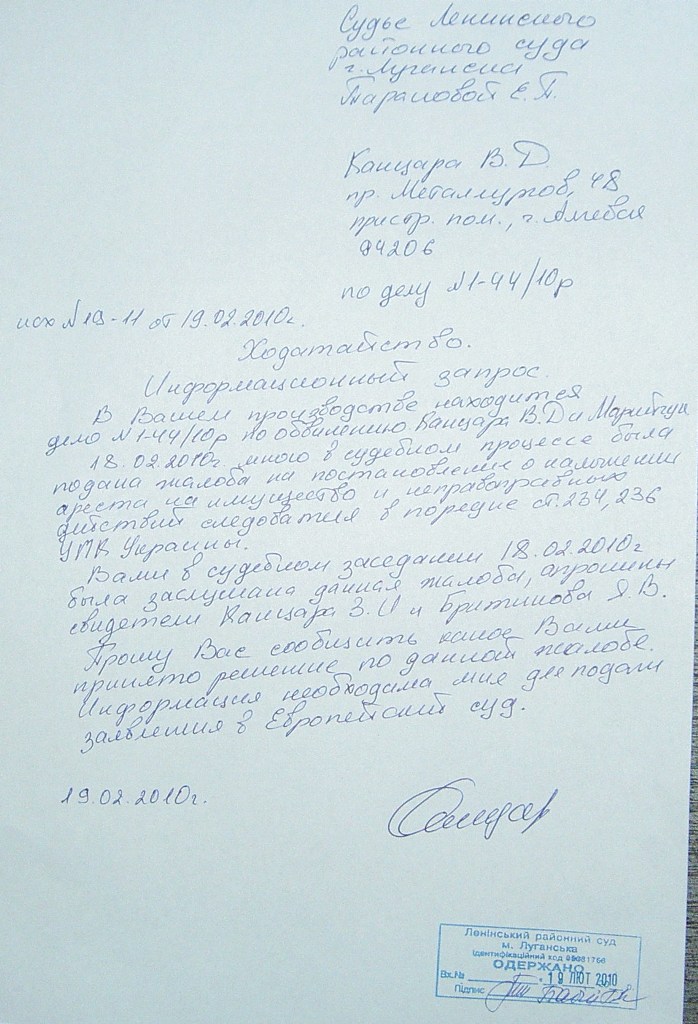 Судье Ленинского
районного суда
г. Луганска
Е. П.
Канцара В. Д.
пр. Металлургов, 48
пристр. пом., г. Алчевск
94206
по делу №1-44/10р
исх №19-11 от 19.02.2010г.
Ходатайство.
Информационный запрос.
В Вашем производстве находится
дело №1-44/10р по обвинению Канцара В.Д и
18.02.2010г. мною в судебном процессе была
подана жалоба на постановление о наложении
ареста на имущество и неправоправных
действий следователя в порядке ст. 234, 236
УПК Украины.
Вами в судебном заседании 18.02.2010г
была заслушана данная жалоба, опрошены
свидетели Канцара З.И и Бритикова Я. В.
Прошу Вас сообщить какое Вами
принято решение по данной жалобе.
Информация необходима мне для подачи
заявления в Европейский суд.
19.02.2010г.
Ленінський районний суд
м. Луганська
ідентифікаційний код
ОДЕРЖАНО
Вх.№ 19 ЛЮТ 2010
Підпис